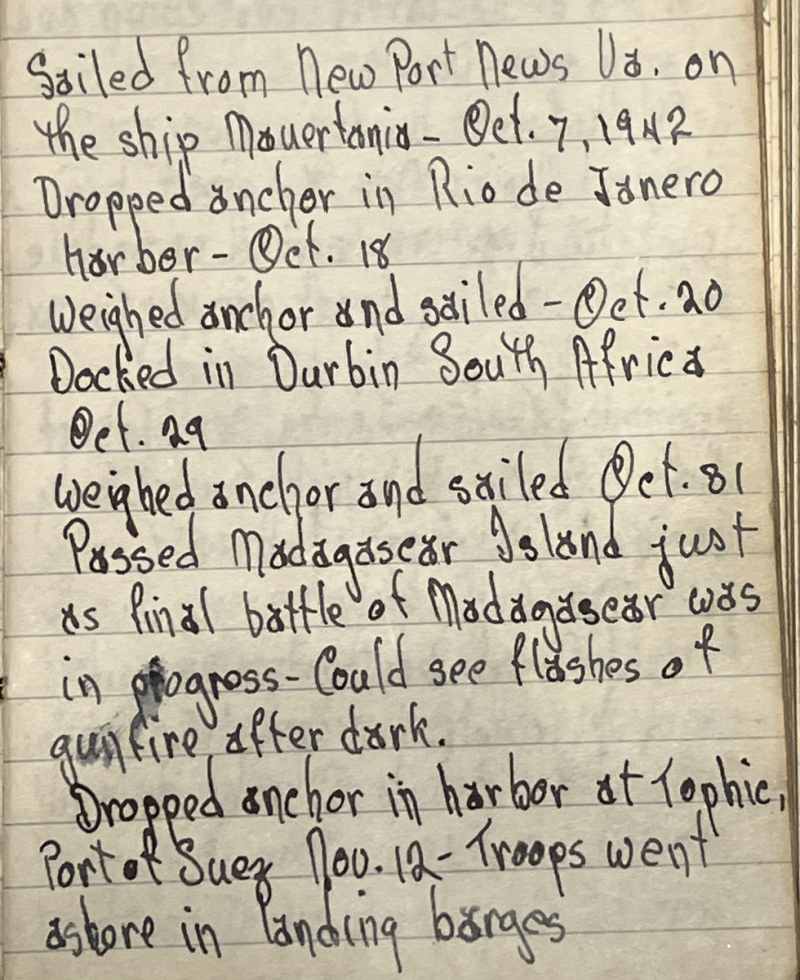 Sailed from New Port News Va. on
the ship Mauertania - Oct. 7, 1942
Dropped anchor in Rio de Janero
harbor - Oct. 18
Weighed anchor and sailed - Oct. 20
Docked in Durbin South Africa
Oct. 29
Weighed anchor and sailed Oct. 31
Passed Madagascar Island just
as final battle of Madagascar was
in progress - Could see flashes of
gunfire after dark.
Dropped anchor in harbor at Tophic,
Port of Suez Nov. 12 - Troops went
ashore in landing barges